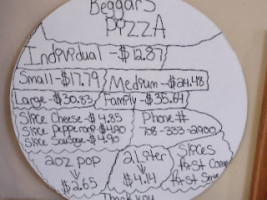 Beggars
PIZZA
Individual -$12.87
Small-$17.79 Medium-$24.48
Large-$30.33 Family-$35.64
Slice Cheese-$4.35
Slice Pepperoni-$4.90
Slice Sausage-$4.90
Phone#
708-333-2900
20z pop
$2.65
2 liter
$4.14
Slices
Thank you